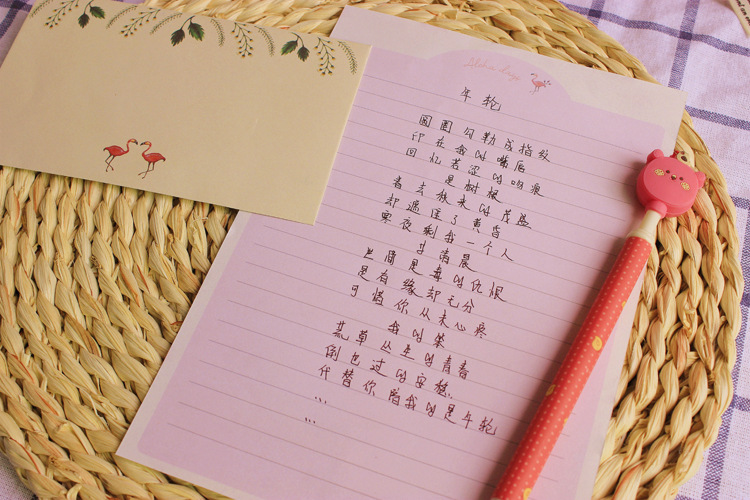 年轮
圆圈勾勒成指纹
印在我的嘴唇
回忆苦涩的吻痕
是树根
春去秋来的茂盛
却遮住了黄昏
寒夜剩我一个人
等清晨
世间最毒的仇恨
是有缘却无分
可惜你从未心疼
我的笨
荒草丛生的青春
倒也过的安稳
代替你陪我的是年轮
...
...